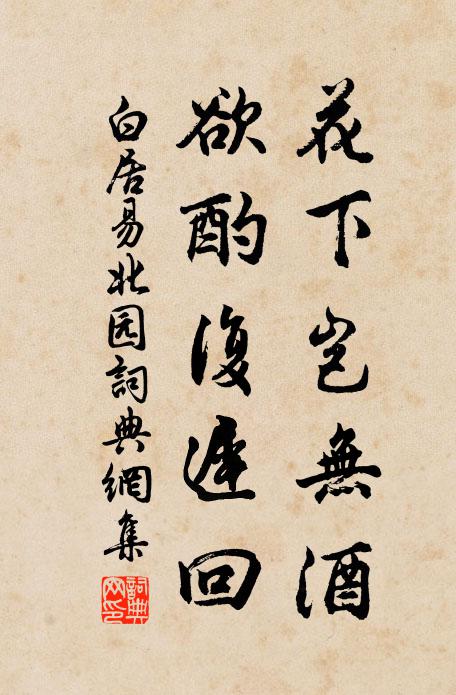 花下豈無酒
欲酌復遲回
白居易北园詞典網集
詞典
网印